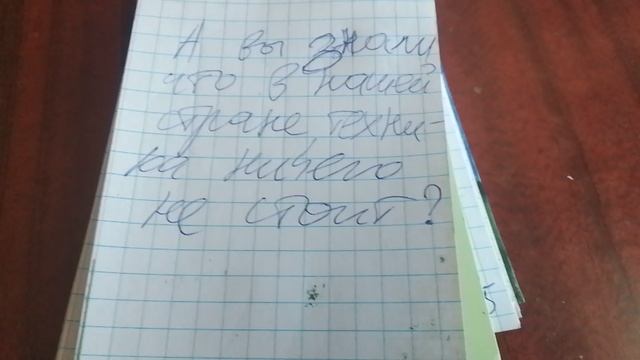 А вы знали
что в нашей
стране техни-
ка ничего
не стоит?
5